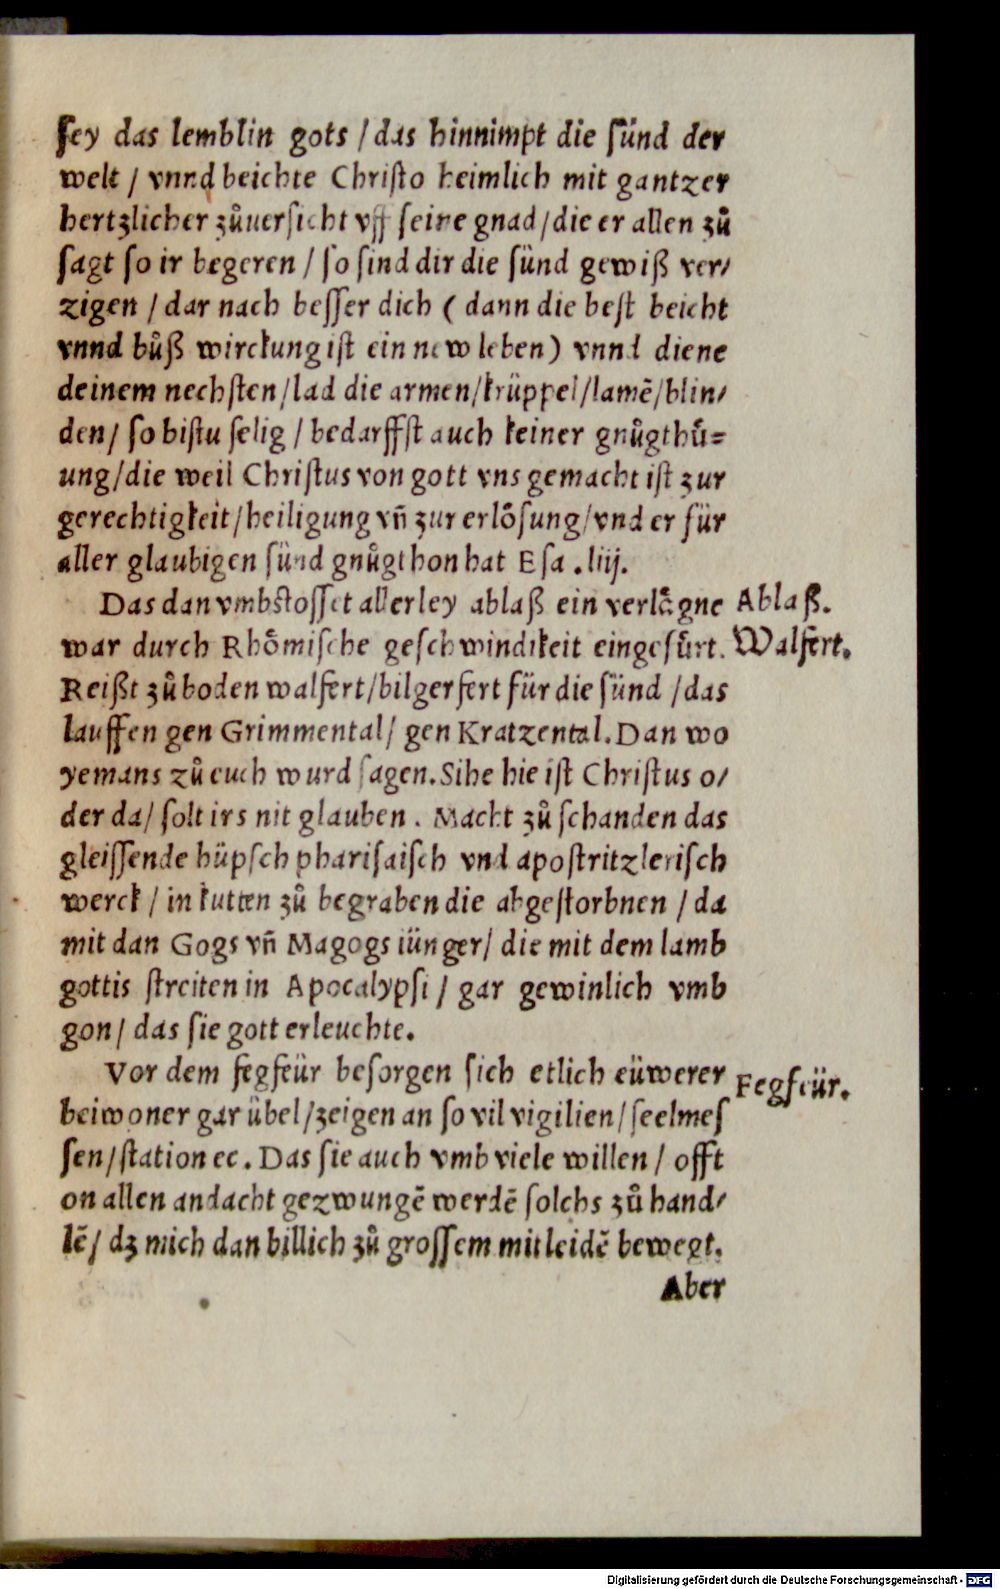 sey das lemblin gots / das hinnimpt die sünd der
welt / vnnd beichte Christo heimlich mit gantzer
hertzlicher zůuersicht vff seine gnad / die er allen zů
sagt so ir begeren / so sind dir die sünd gewiß ver/
zigen / dar nach besser dich ( dann die best beicht
vnnd bůß wirckung ist ein new leben) vnnd diene
deinem nechsten/lad die armen/krüppel/lamẽ/blin/
den/ so bistu selig / bedarffst auch keiner gnůgthů=
ung/die weil Christus von gott vns gemacht ist zur
gerechtigkeit/heiligung vñ zur erlösung/vnd er für
aller glaubigen sünd gnůgthon hat Esa .liij.
Das dan vmbstosset allerley ablaß ein verlågne
Ablaß.
war durch Rhômische geschwindikeit eingefůrt.
Walfert.
Reißt zů boden walfert/bilgerfert für die sünd /das
lauffen gen Grimmental/ gen Kratzental. Dan wo
yemans zů euch wurd sagen. Sihe hie ist Christus o/
der da/ solt irs nit glauben . Macht zů schanden das
gleissende hüpsch pharisaisch vnd apostritzlerisch
werck / in kutten zů begraben die abgestorbnen / da
mit dan Gogs vñ Magogs iünger/ die mit dem lamb
gottis streiten in Apocalypsi / gar gewinlich vmb
gon/ das sie gott erleuchte.
Vor dem fegfeür besorgen sich etlich eüwerer
Fegfeür.
beiwoner gar übel/zeigen an so vil vigilien/seelmes
sen/station ec. Das sie auch vmb viele willen / offt
on allen andacht gezwungẽ werdẽ solchs zů hand/
lẽ/ dz mich dan billich zů grossem mitleidẽ bewegt.
Aber
Digitalisierung gefördert durch die Deutsche Forschungsgemeinschaft - DFG